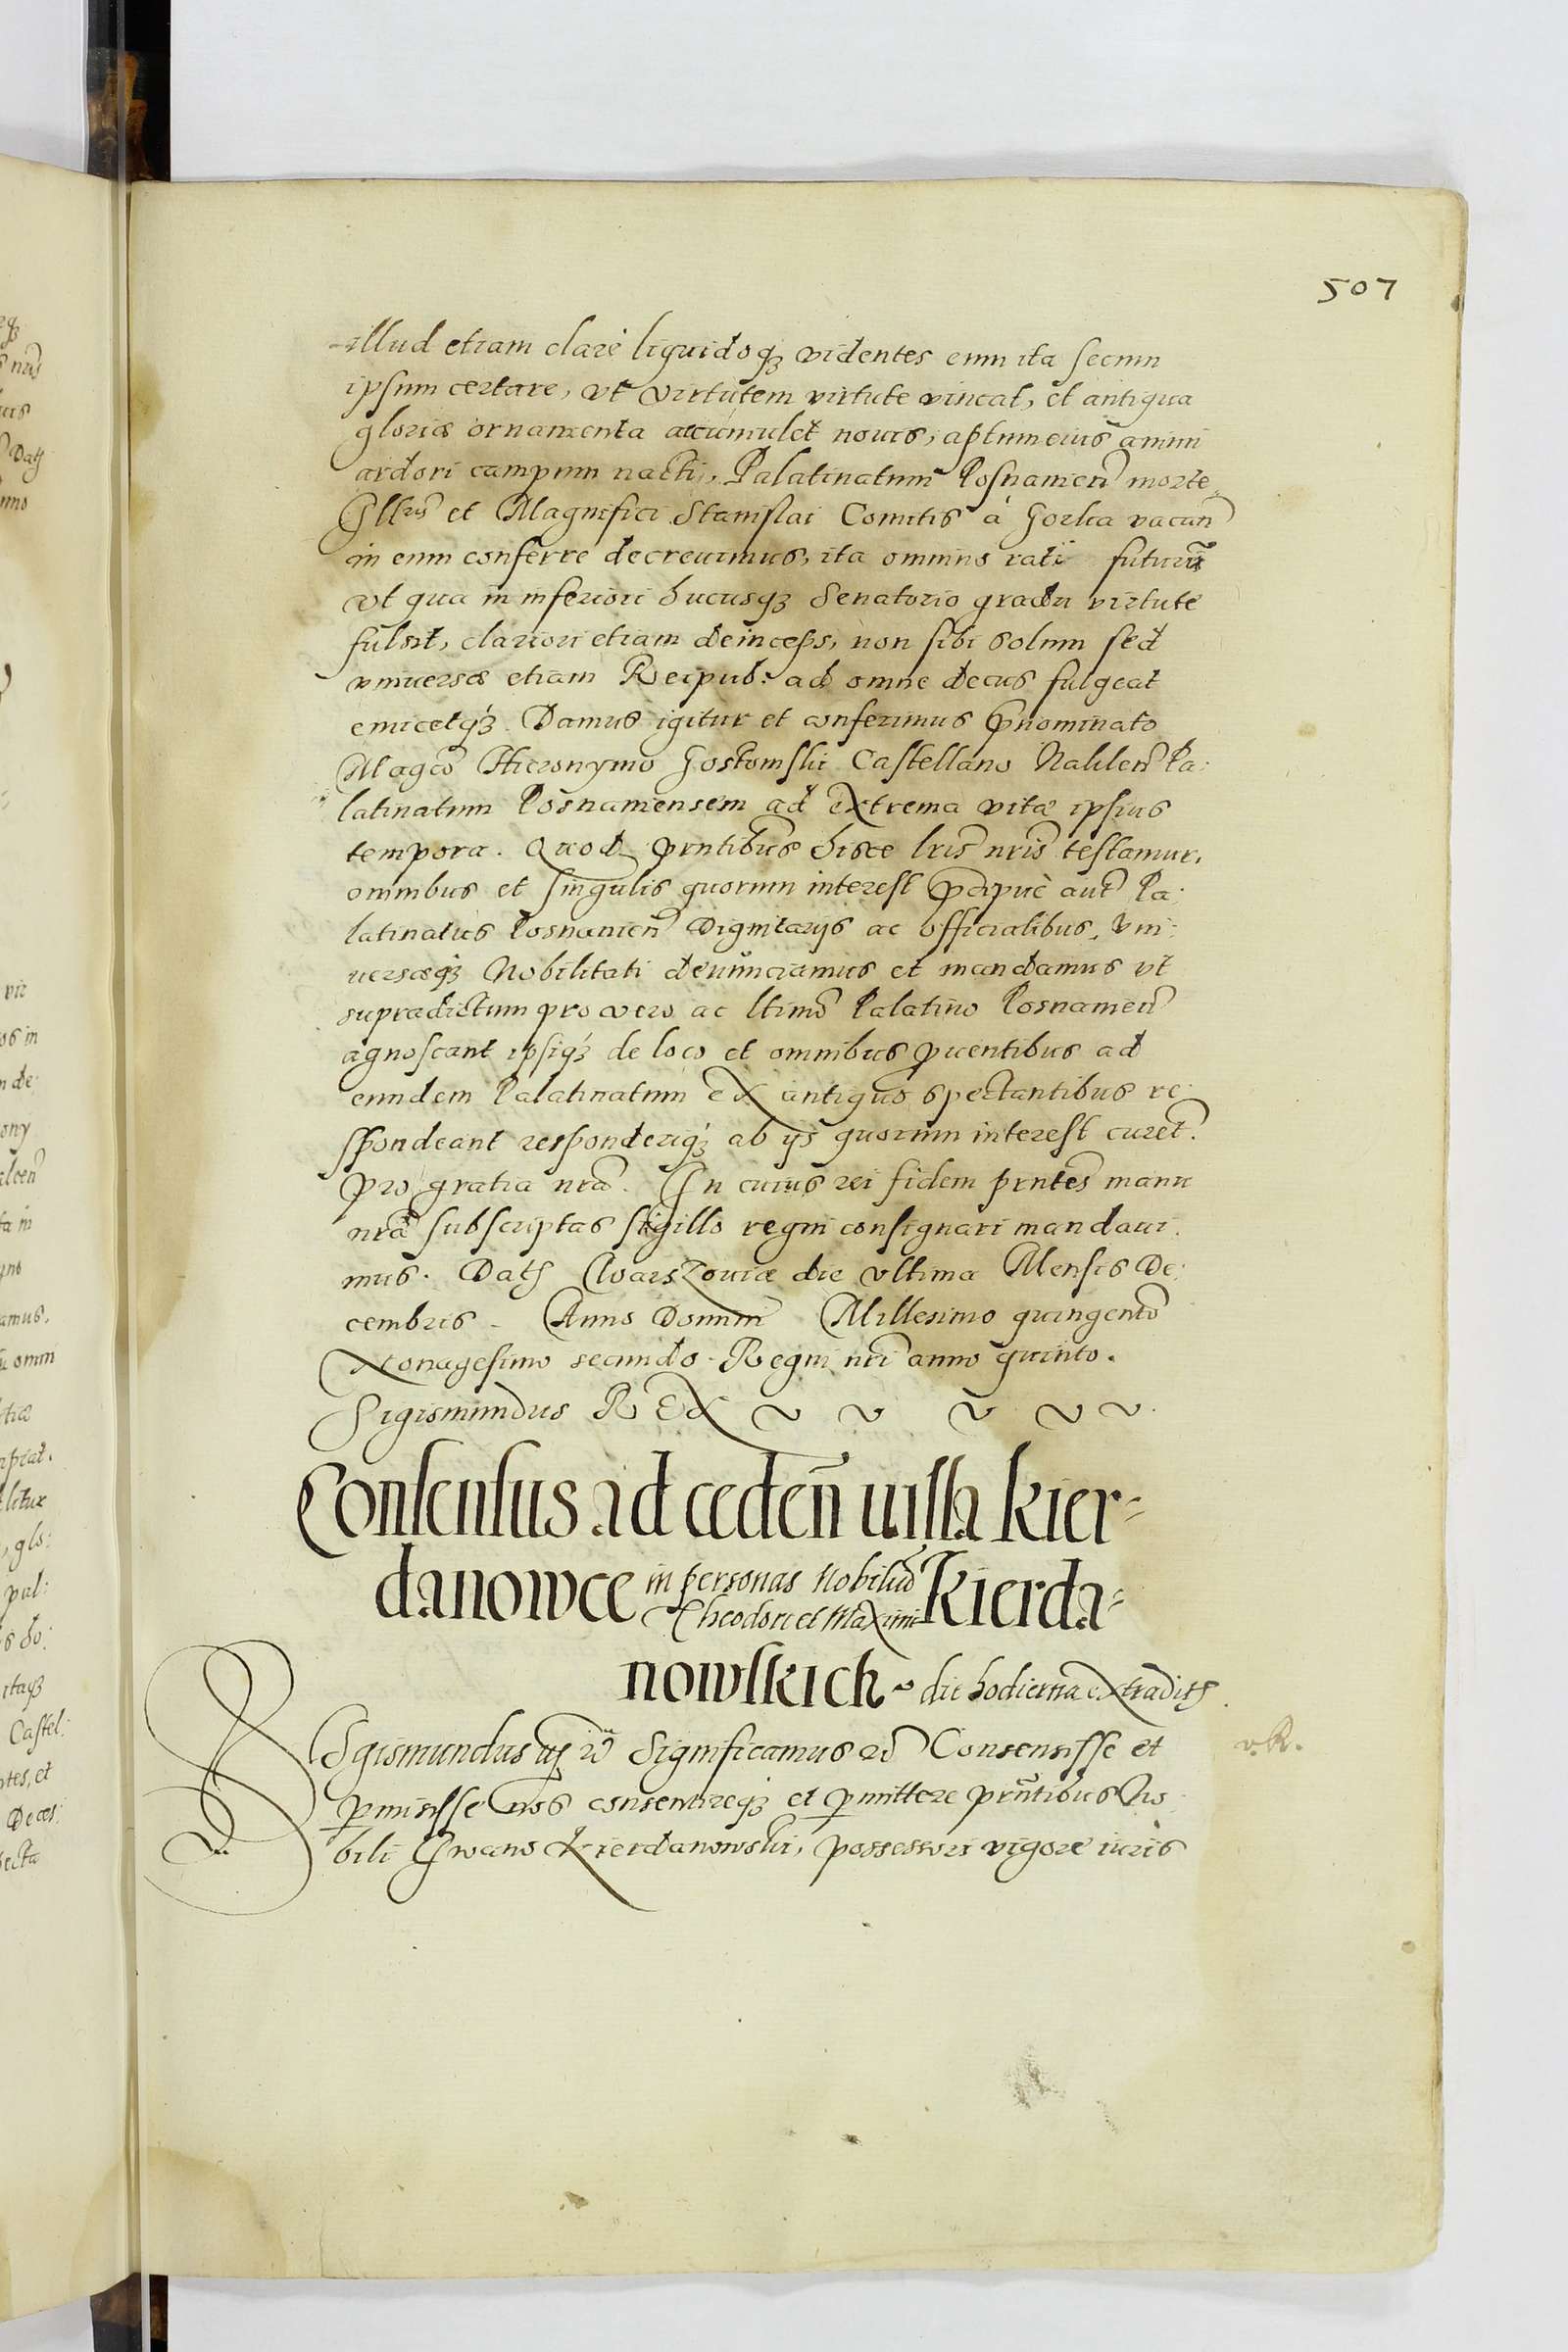 507
illud etiam clarè liquidoqȝ videntes eum ita secum
ipsum certare, vt virtutem virtute vincat, et antiqua
gloriæ ornamenta accumulet nouis, aptum eius animi
ardori campum nacti, Palatinatum Posnanien̄ morte
Illris et Magnifici Stanislai Comitis à Gorka vacan̄
in eum conferre decreuimus, ita omnino rati futurū
vt qua in inferiori hucusqȝ Senatorio gradu virtute
fulsit, clariori etiam deinceps, non sibi solum sed
vniuersæ etiam Reipub: ad omne decus fulgeat
emicetqȝ. Damus igitur et conferimus p̄nominato
Magco Hieronymo Gostomski Castellano Naklen̄ Pa:
latinatum Posnaniensem ad extrema vitæ ipsius
tempora. Quod prntibus hisce lris nris testamur,
omnibus et singulis quorum interest p̄cipuè aut̄ Pa:
latinatus Posnanien̄ Dignitarijs ac officialibus, vni:
uersæqȝ Nobilitati denunciamus et mandamus vt
supradictum pro vero ac ltimo Palatino Posnanien̄
agnoscant ipsiqȝ de loco et omnibus p̱uentibus ad
eundem Palatinatum ex antiquo spectantibus re:
spondeant responderiqȝ ab ijs quorum interest curet.
pro gratia nrā. In cuius rei fidem prntes manu
nrā subscriptas sigillo regni consignari mandaui:
mus. Datȝ Warszouiæ die vltima Mensis De:
cembris. Anno Domini Millesimo quingento
Nonagesimo secundo. Regni nri anno quinto.
Sigismundus REX
Consensus ad ceden̄ uilla Kier=
danowce in personas Nobiliū
Theodori et Maximi Kierda=
nowskich. die hodierna extraditȝ.
Sigismundus iij rc̄ Significamus rc̄ Consensisse et v.R.
p̱misisse nos consentireqȝ et p̱mittere prn̄tibus No:
bili Iwano Kierdanowski, possessori vigore iuris